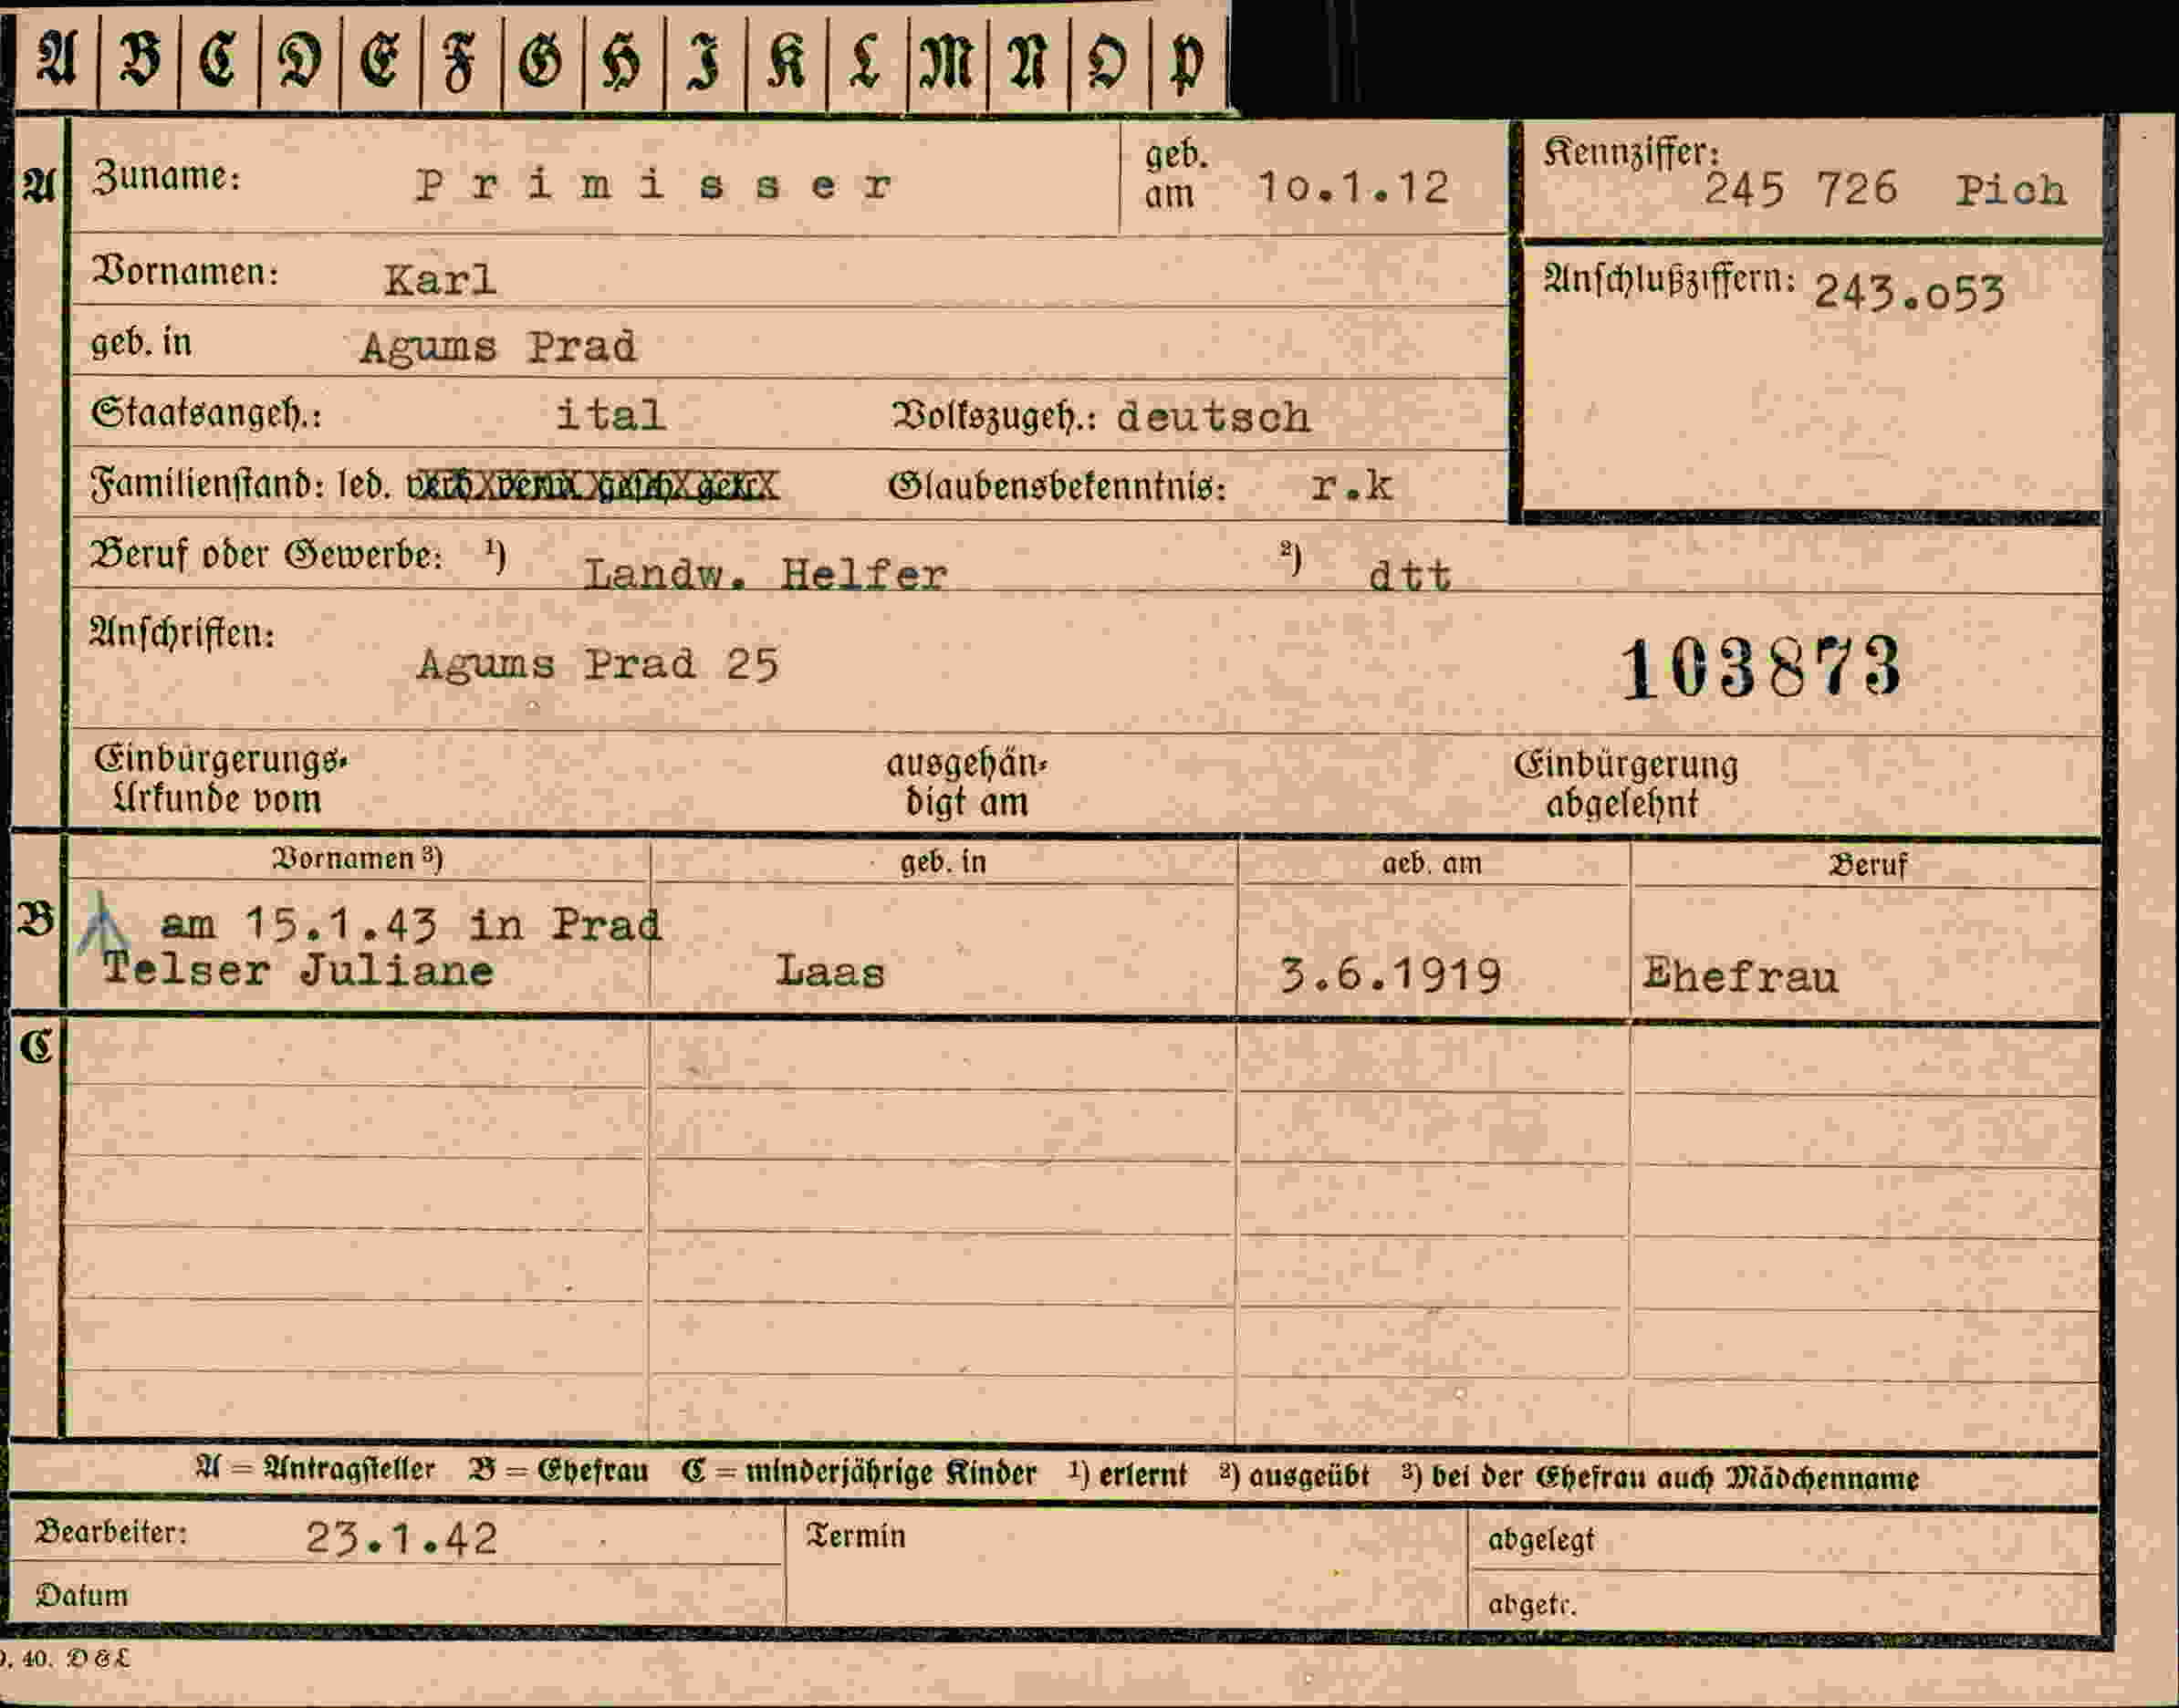 A B C D E F G H I K L M N O P
A Zuname: Primisser geb. am 10.1.12 Kennziffer: 245 726 Pich
Vornamen: Karl Anschlußziffern: 243.053
geb. in Agums Prad
Staatsangeh.: ital Volkszugeh.: deutsch
Familienstand: led. verh. verw. gesch. getr. Glaubensbekenntnis: r.k
Beruf oder Gewerbe: ¹) Landw. Helfer ²) dtt
Anschriften: Agums Prad 25 103873
Einbürgerungs- ausgehän- Einbürgerung
Urkunde vom digt am abgelehnt
Vornamen ³) geb. in geb. am Beruf
B am 15.1.43 in Prad
Telser Juliane Laas 3.6.1919 Ehefrau
C
A = Antragsteller B = Ehefrau C = minderjährige Kinder ¹) erlernt ²) ausgeübt ³) bei der Ehefrau auch Mädchenname
Bearbeiter: 23.1.42 Termin abgelegt
Datum abgetr.
40. D & L